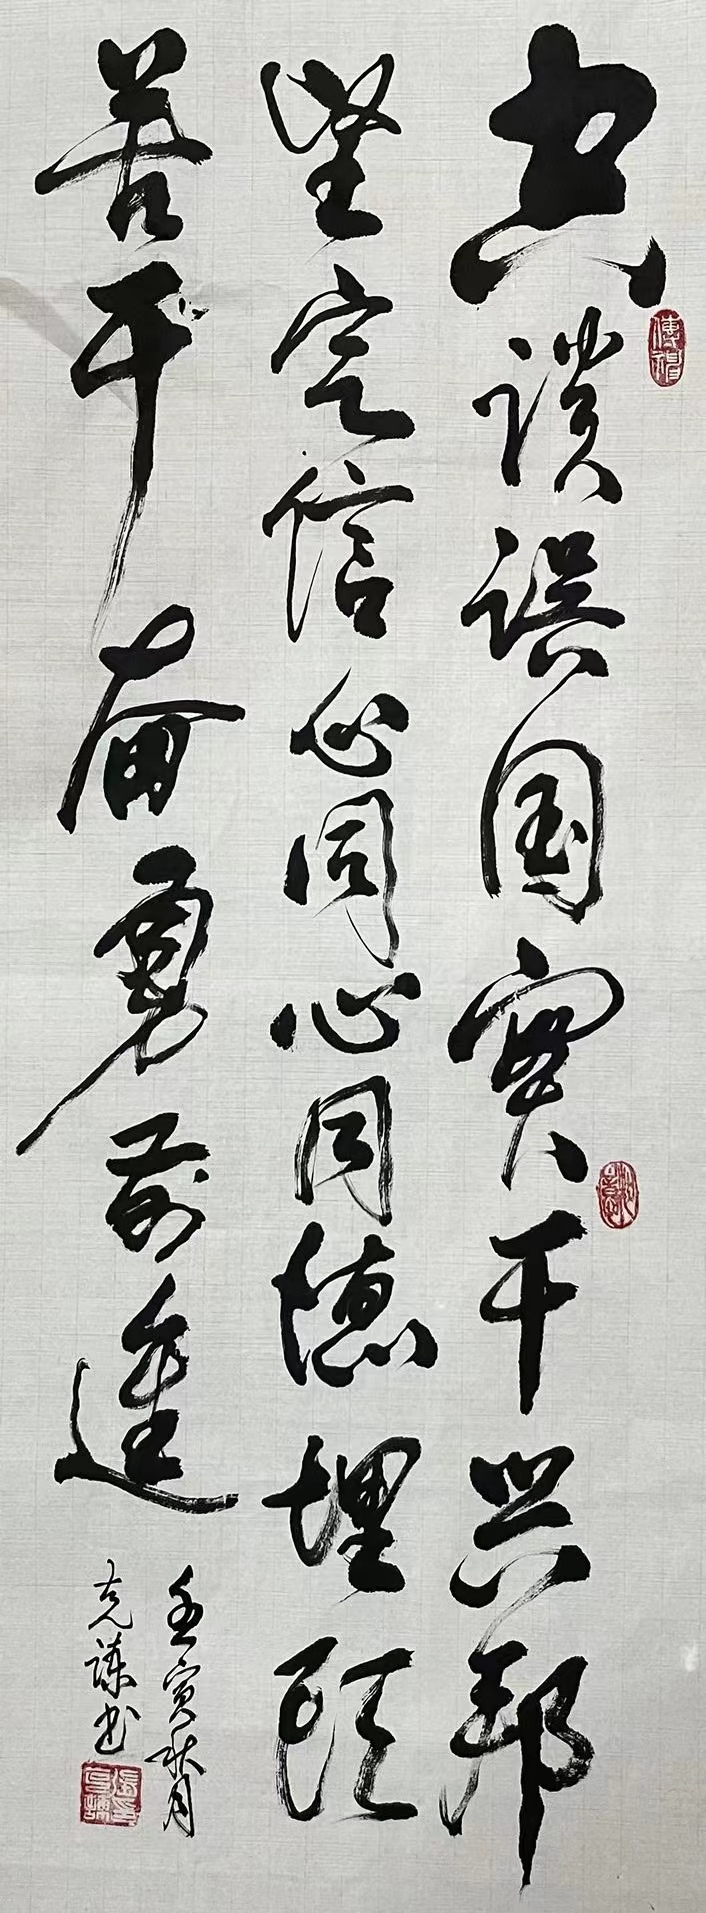 空谈误国實干兴邦
坚定信心同心同德埋頭
苦干奋勇前進
壬寅秋月
克书